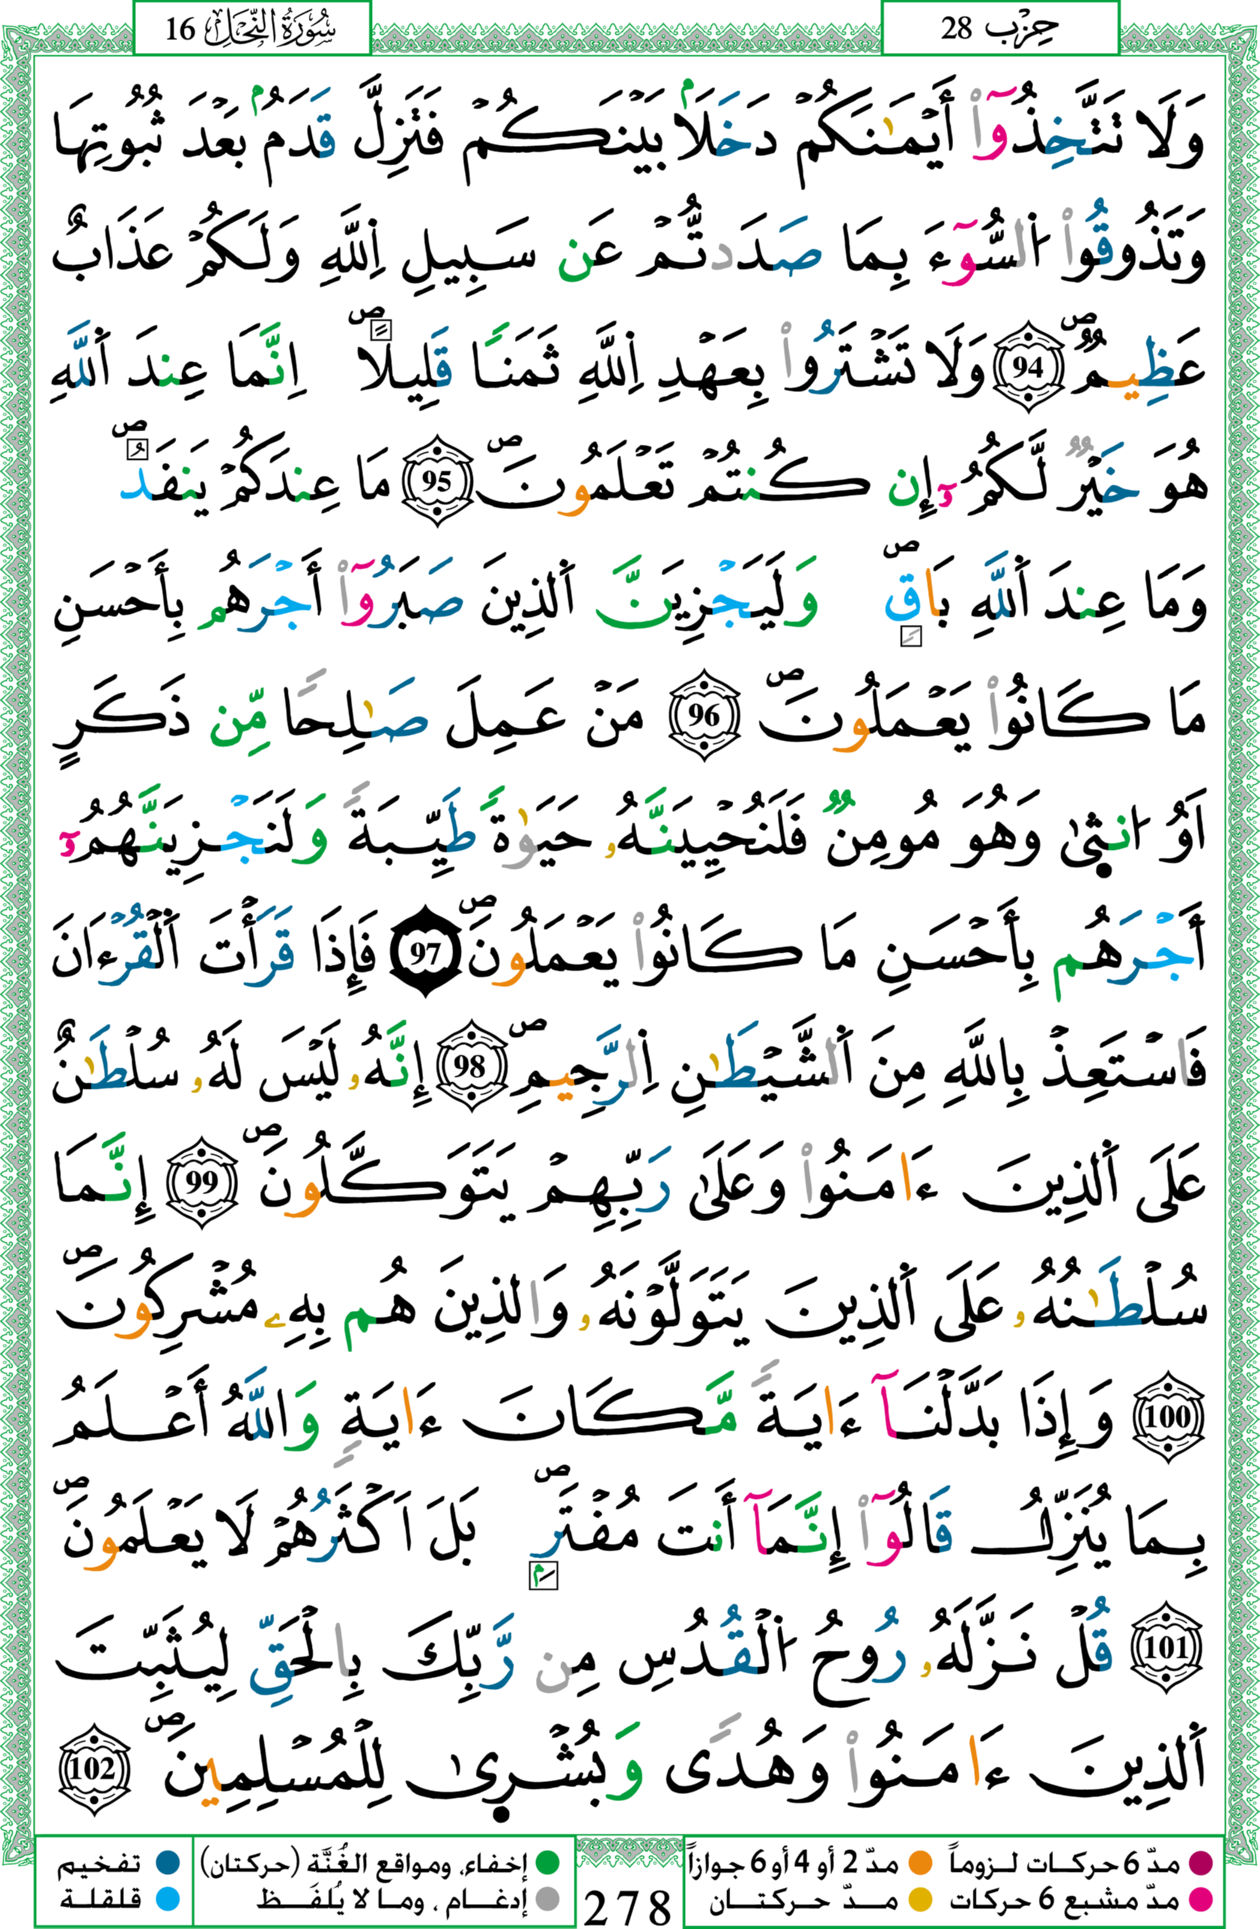 سُورَةُ النَّحْلِ 16
حِزْب 28
وَلَا تَتَّخِذُوٓاْ أَيْمَٰنَكُمْ دَخَلَاۢ بَيْنَكُمْ فَتَزِلَّ قَدَمُۢ بَعْدَ ثُبُوتِهَا
وَتَذُوقُواْ اُ۬لسُّوٓءَ بِمَا صَدَدتُّمْ عَن سَبِيلِ اِ۬للَّهِ وَلَكُمْ عَذَابٌ
عَظِيمٌۖ 94 وَلَا تَشْتَرُواْ بِعَهْدِ اِ۬للَّهِ ثَمَنًا قَلِيلًاۖ اِنَّمَا عِندَ اَ۬للَّهِ
هُوَ خَيْرٌ لَّكُمُۥٓ إِن كُنتُمْ تَعْلَمُونَۖ 95 مَا عِندَكُمْ يَنفَدُۖ
وَمَا عِندَ اَ۬للَّهِ بَاقٍۖ وَلَيَجْزِيَنَّ اَ۬لذِينَ صَبَرُوٓاْ أَجْرَهُم بِأَحْسَنِ
مَا كَانُواْ يَعْمَلُونَۖ 96 مَنْ عَمِلَ صَٰلِحًا مِّن ذَكَرٍ
اَوُ ا۟نث۪ىٰ وَهُوَ مُومِنٌ فَلَنُحْيِيَنَّهُۥ حَيَوٰةً طَيِّبَةً وَلَنَجْزِيَنَّهُمُۥٓ
أَجْرَهُم بِأَحْسَنِ مَا كَانُواْ يَعْمَلُونَۖ 97 فَإِذَا قَرَأْتَ اَ۬لْقُرْءَانَ
فَاسْتَعِذْ بِاللَّهِ مِنَ اَ۬لشَّيْطَٰنِ اِ۬لرَّجِيمِۖ 98 إِنَّهُۥ لَيْسَ لَهُۥ سُلْطَٰنٌ
عَلَى اَ۬لذِينَ ءَامَنُواْ وَعَلَىٰ رَبِّهِمْ يَتَوَكَّلُونَۖ 99 إِنَّمَا
سُلْطَٰنُهُۥ عَلَى اَ۬لذِينَ يَتَوَلَّوْنَهُۥ وَالذِينَ هُم بِهِۦ مُشْرِكُونَۖ
100 وَإِذَا بَدَّلْنَآ ءَايَةً مَّكَانَ ءَايَةٍ وَاللَّهُ أَعْلَمُ
بِمَا يُنَزِّلُ قَالُوٓاْ إِنَّمَآ أَنتَ مُفْتَرٍۖ بَلَ اَكْثَرُهُمْ لَا يَعْلَمُونَۖ
101 قُلْ نَزَّلَهُۥ رُوحُ اُ۬لْقُدُسِ مِن رَّبِّكَ بِالْحَقِّ لِيُثَبِّتَ
اَ۬لذِينَ ءَامَنُواْ وَهُدًى وَبُشْر۪ىٰ لِلْمُسْلِمِينَۖ 102
مدّ 6 حركات لزوماً مدّ 2 أو 4 أو 6 جوازاً
مدّ مشبع 6 حركات مدّ حركتان
278
إخفاء، ومواقع الغُنَّة (حركتان) تفخيم
إدغام ، وما لا يُلفَظ قلقلة